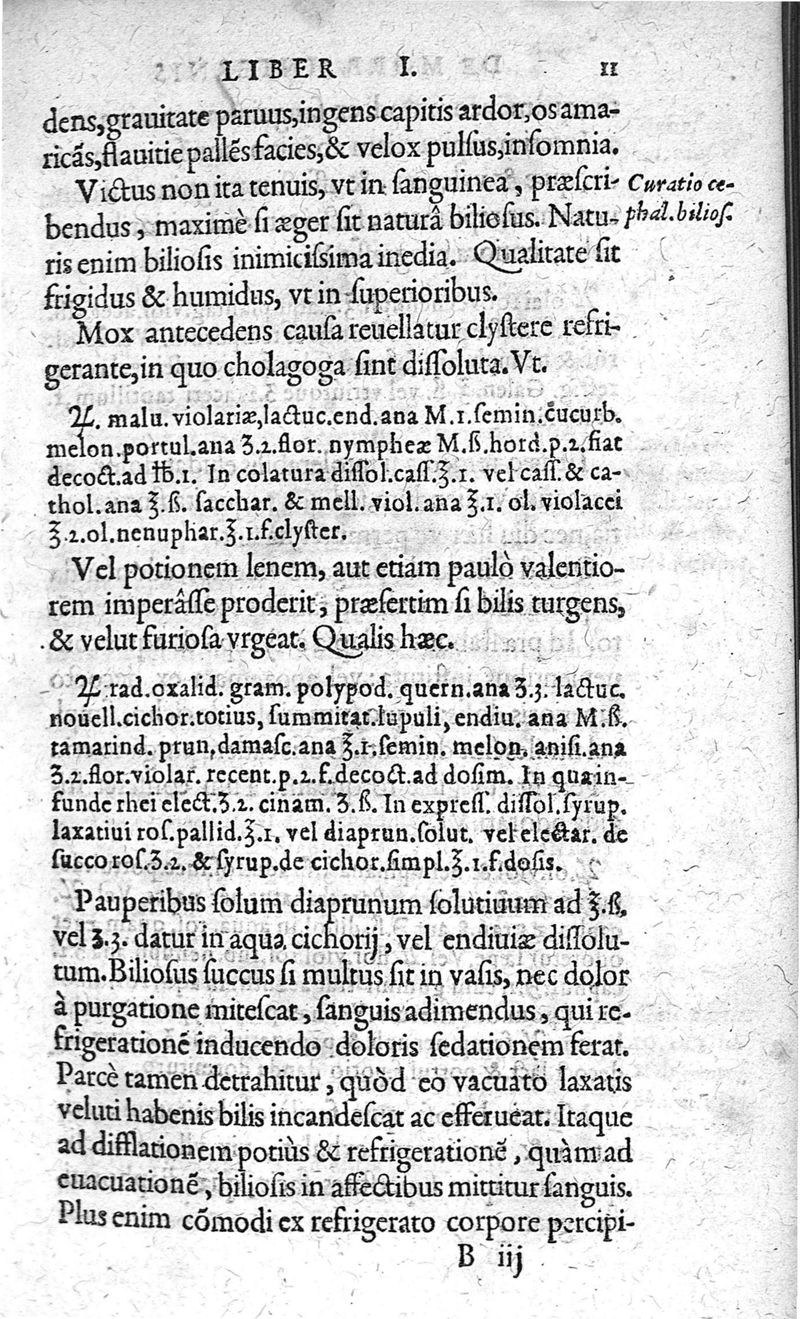 LIBER I. 11
dens,grauitate paruus,ingens capitis ardor,os ama-
ricãs,flauitie pallẽs facies,& velox pulſus,inſomnia.
Victus non ita tenuis, vt in ſanguinea, præſcri-
Curatio ce-
bendus, maximè ſi æger ſit naturâ bilioſus. Natu-
phal.bilioſ.
ris enim bilioſis inimiciſsima inedia. Qualitate ſit
frigidus & humidus, vt in ſuperioribus.
Mox antecedens cauſa reuellatur clyſtere refri-
gerante,in quo cholagoga ſint diſſoluta.Vt.
℞. malu. violariæ,lactuc.end.ana M.1.ſemin.cucurb.
melon.portul.ana ʒ.2.flor. nympheæ M.ß.hord.p.2.fiat
decoct.ad ℔.1. In colatura diſſol.caſſ.℥.1. vel caſſ.& ca-
thol.ana ℥.ß. ſacchar. & mell. viol.ana ℥.1. ol. violacei
℥.2.ol.nenuphar.℥.1.f.clyſter.
Vel potionem lenem, aut etiam paulò valentio-
rem imperâſſe proderit, præſertim ſi bilis turgens,
& velut furioſa vrgeat. Qualis hæc.
℞ rad.oxalid. gram. polypod. quern.ana ʒ.3. lactuc.
nouell.cichor.totius, ſummitat.lupuli, endiu. ana M.ß.
tamarind. prun,damaſc.ana ℥.1.ſemin. melon. aniſi.ana
ʒ.2.flor.violar. recent.p.2.f.decoct.ad doſim. In qua in-
funde rhei elect.ʒ.2. cinam. ʒ.ß. In expreſſ. diſſol.ſyrup.
laxatiui roſ.pallid.℥.1. vel diaprun.ſolut. vel electar. de
ſucco roſ.ʒ.2. & ſyrup.de cichor.ſimpl.℥.1.f.doſis.
Pauperibus ſolum diaprunum ſolutiuum ad ℥.ß,
vel ʒ.3. datur in aqua cichorij, vel endiuiæ diſſolu-
tum.Bilioſus ſuccus ſi multus ſit in vaſis, nec dolor
à purgatione miteſcat, ſanguis adimendus, qui re-
frigerationẽ inducendo doloris ſedationem ferat.
Parcè tamen detrahitur, quòd eo vacuato laxatis
veluti habenis bilis incandeſcat ac efferueat. Itaque
ad difflationem potiùs & refrigerationẽ, quàm ad
euacuationẽ, bilioſis in affectibus mittitur ſanguis.
Plus enim cõmodi ex refrigerato corpore percipi-
B iij